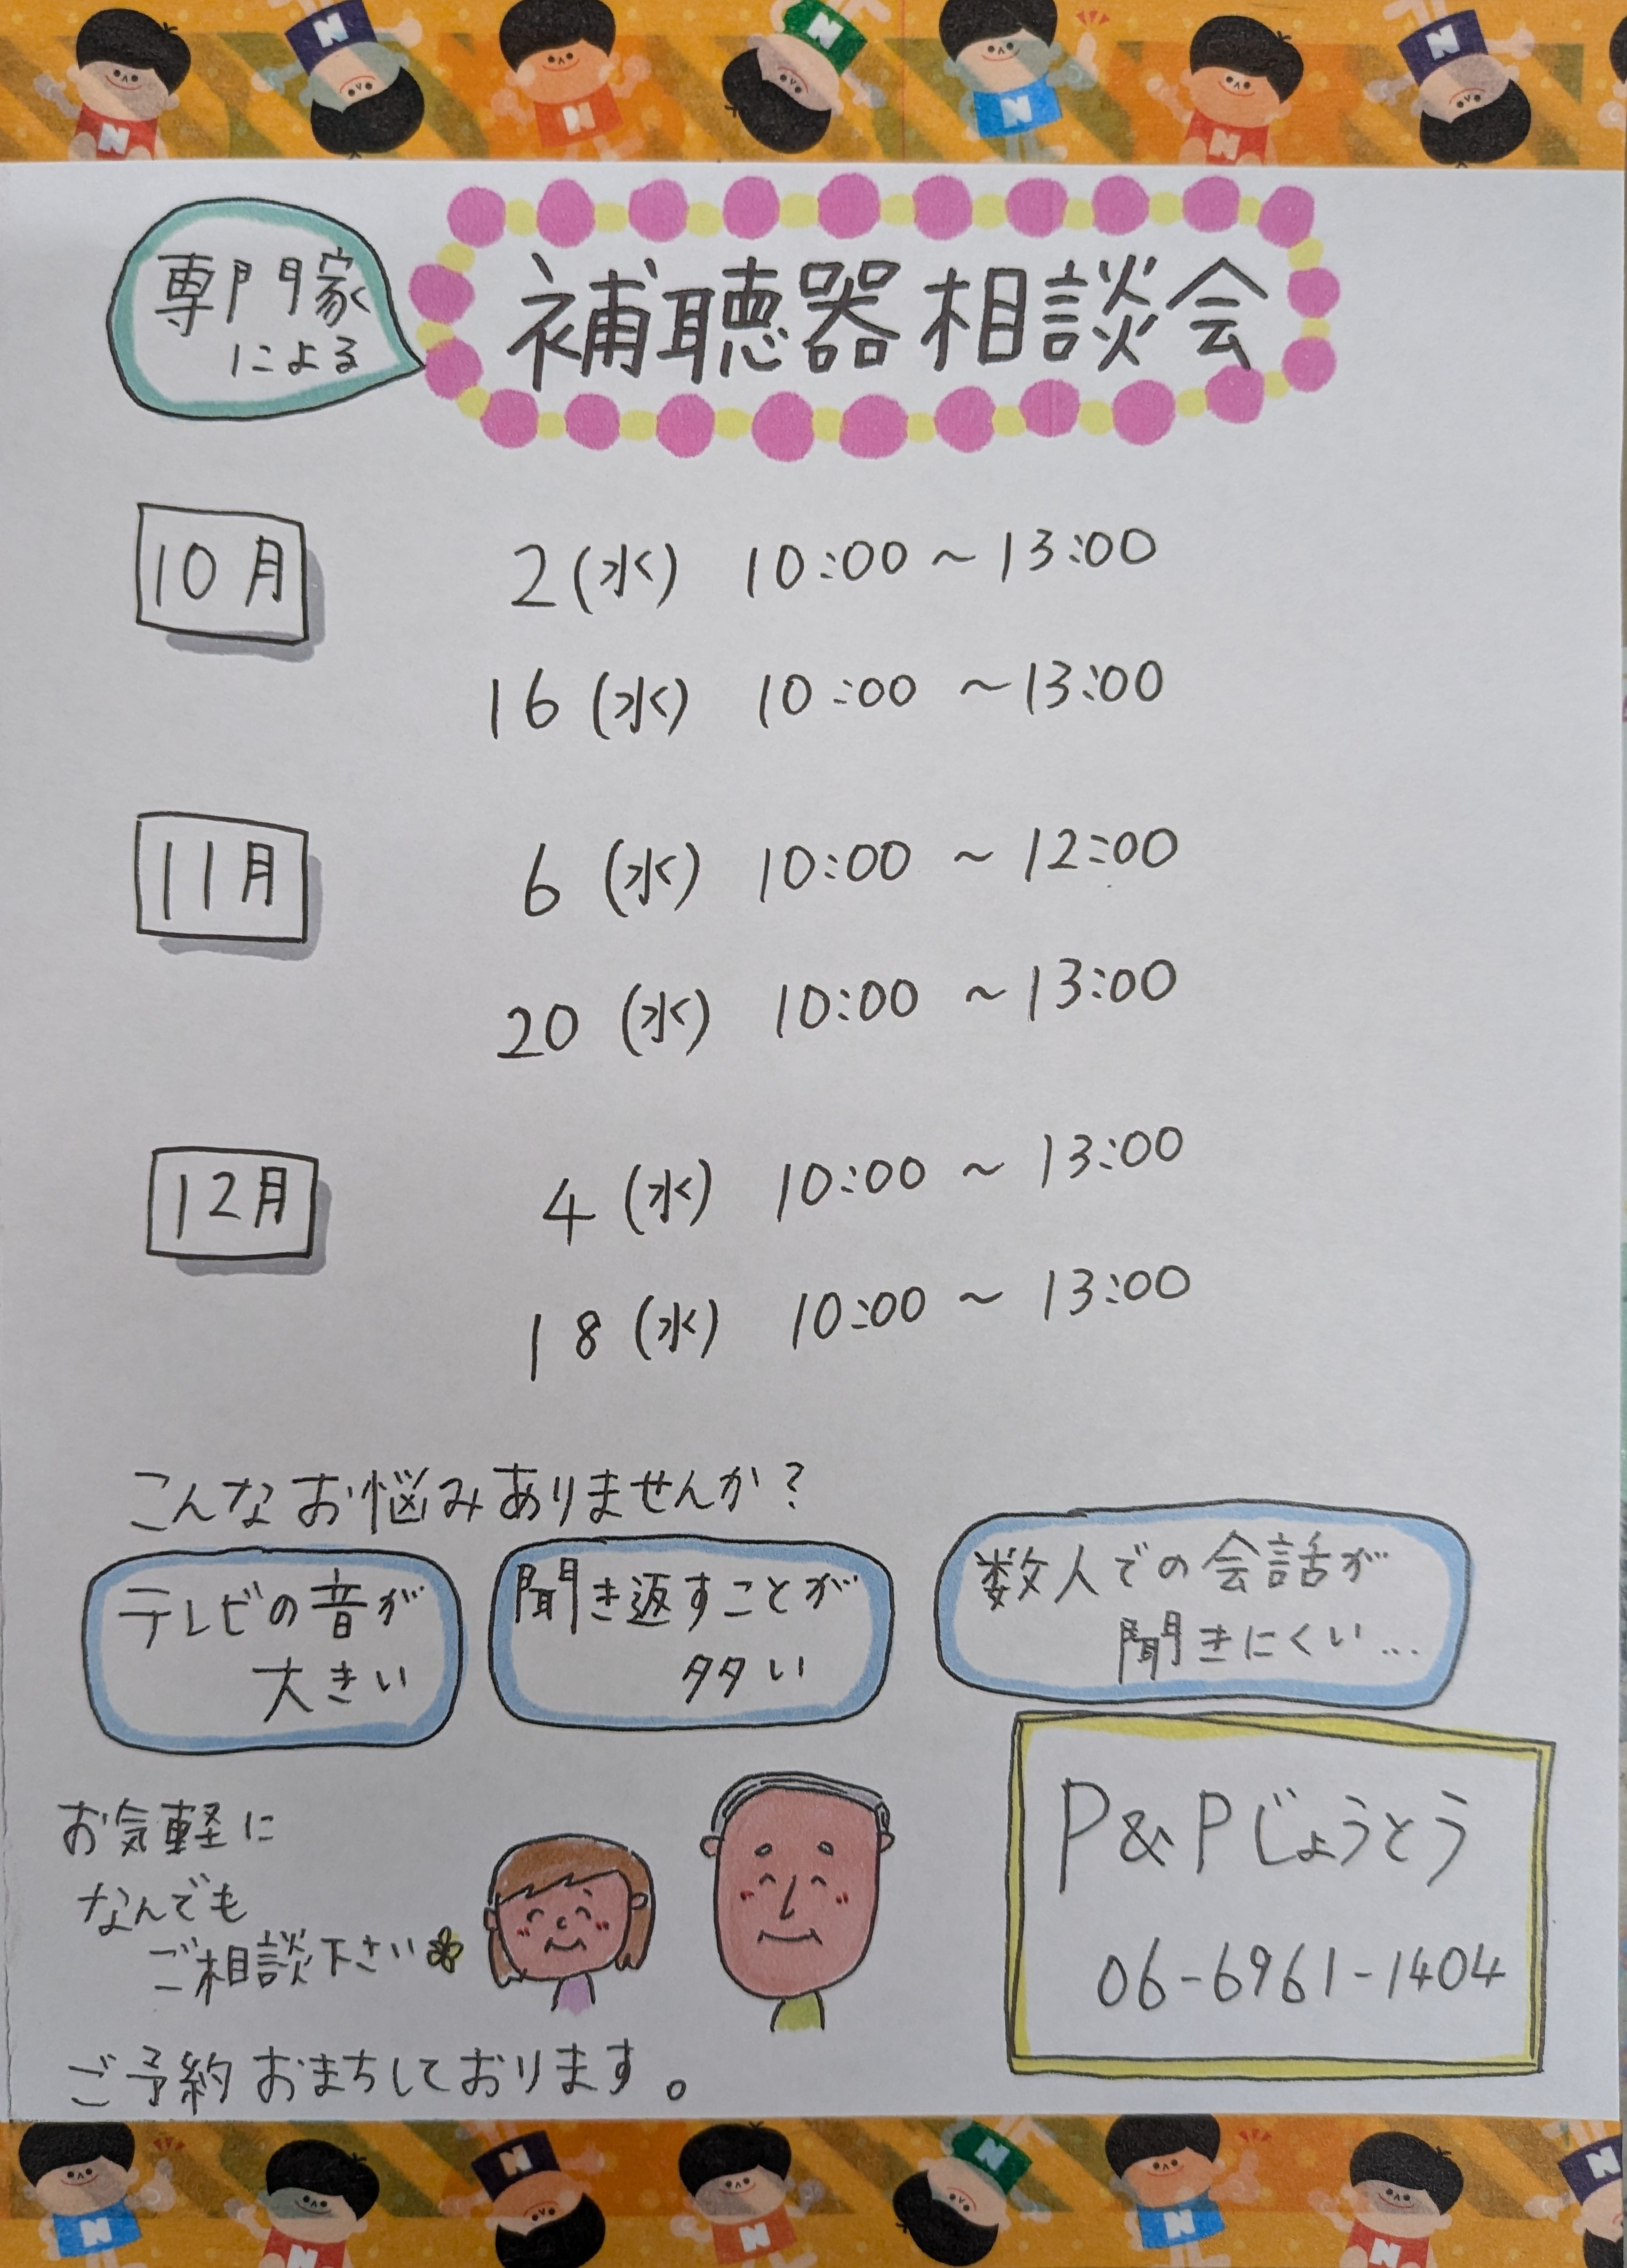 専門家
による
補聴器相談会
10月
2(水) 10:00～13:00
16(水) 10:00～13:00
11月
6(水) 10:00～12:00
20(水) 10:00～13:00
12月
4(水) 10:00～13:00
18(水) 10:00～13:00
こんなお悩みありませんか？
テレビの音が
大きい
聞き返すことが
多い
数人での会話が
聞きにくい...
お気軽に
なんでも
ご相談下さい
P&Pじょうとう
06-6961-1404
ご予約おまちしております。